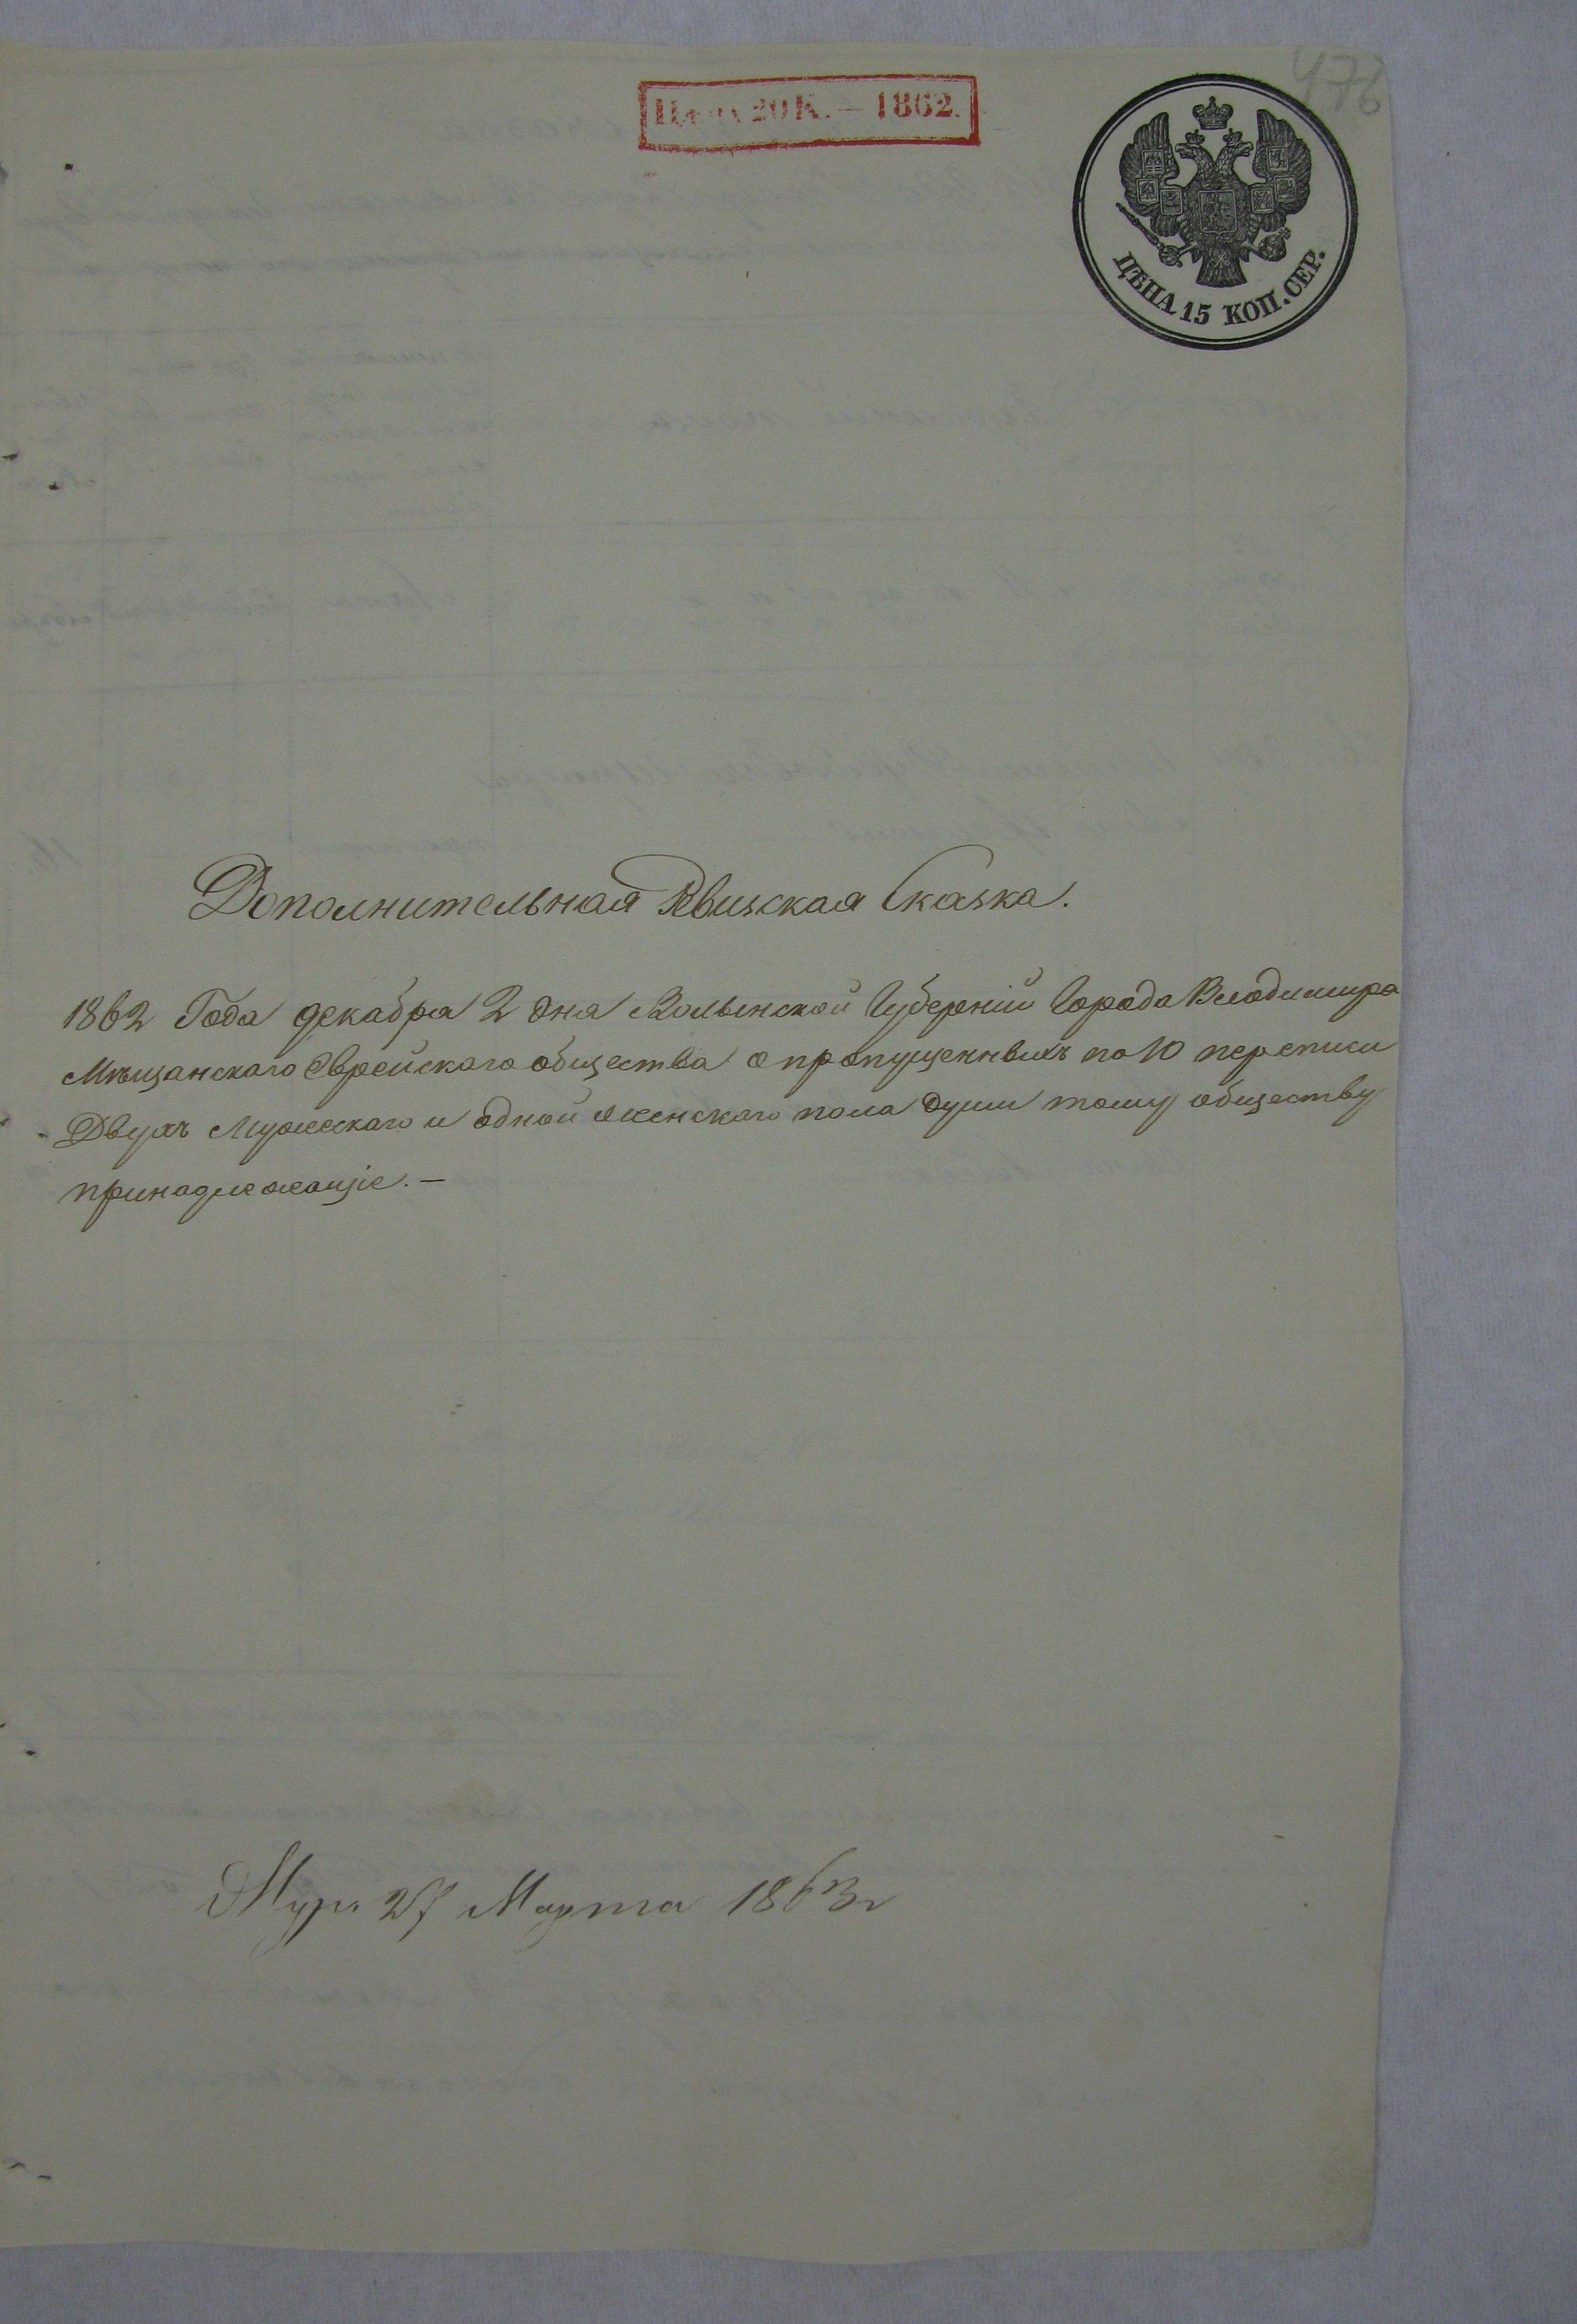 476
Цѣна 20 К. — 1862.
ЦѢНА 15 КОП. СЕР.
Дополнительная Ревизская Сказка.
1862 Года декабря 2 дня Волынской Губерніи Города Владимира
Мѣщанскаго Еврейскаго общества о пропущенныхъ по 10 переписи
Двухъ Мужескаго и одной женскаго пола души тому обществу
принадлежащіе. —
27 Марта 1863 г